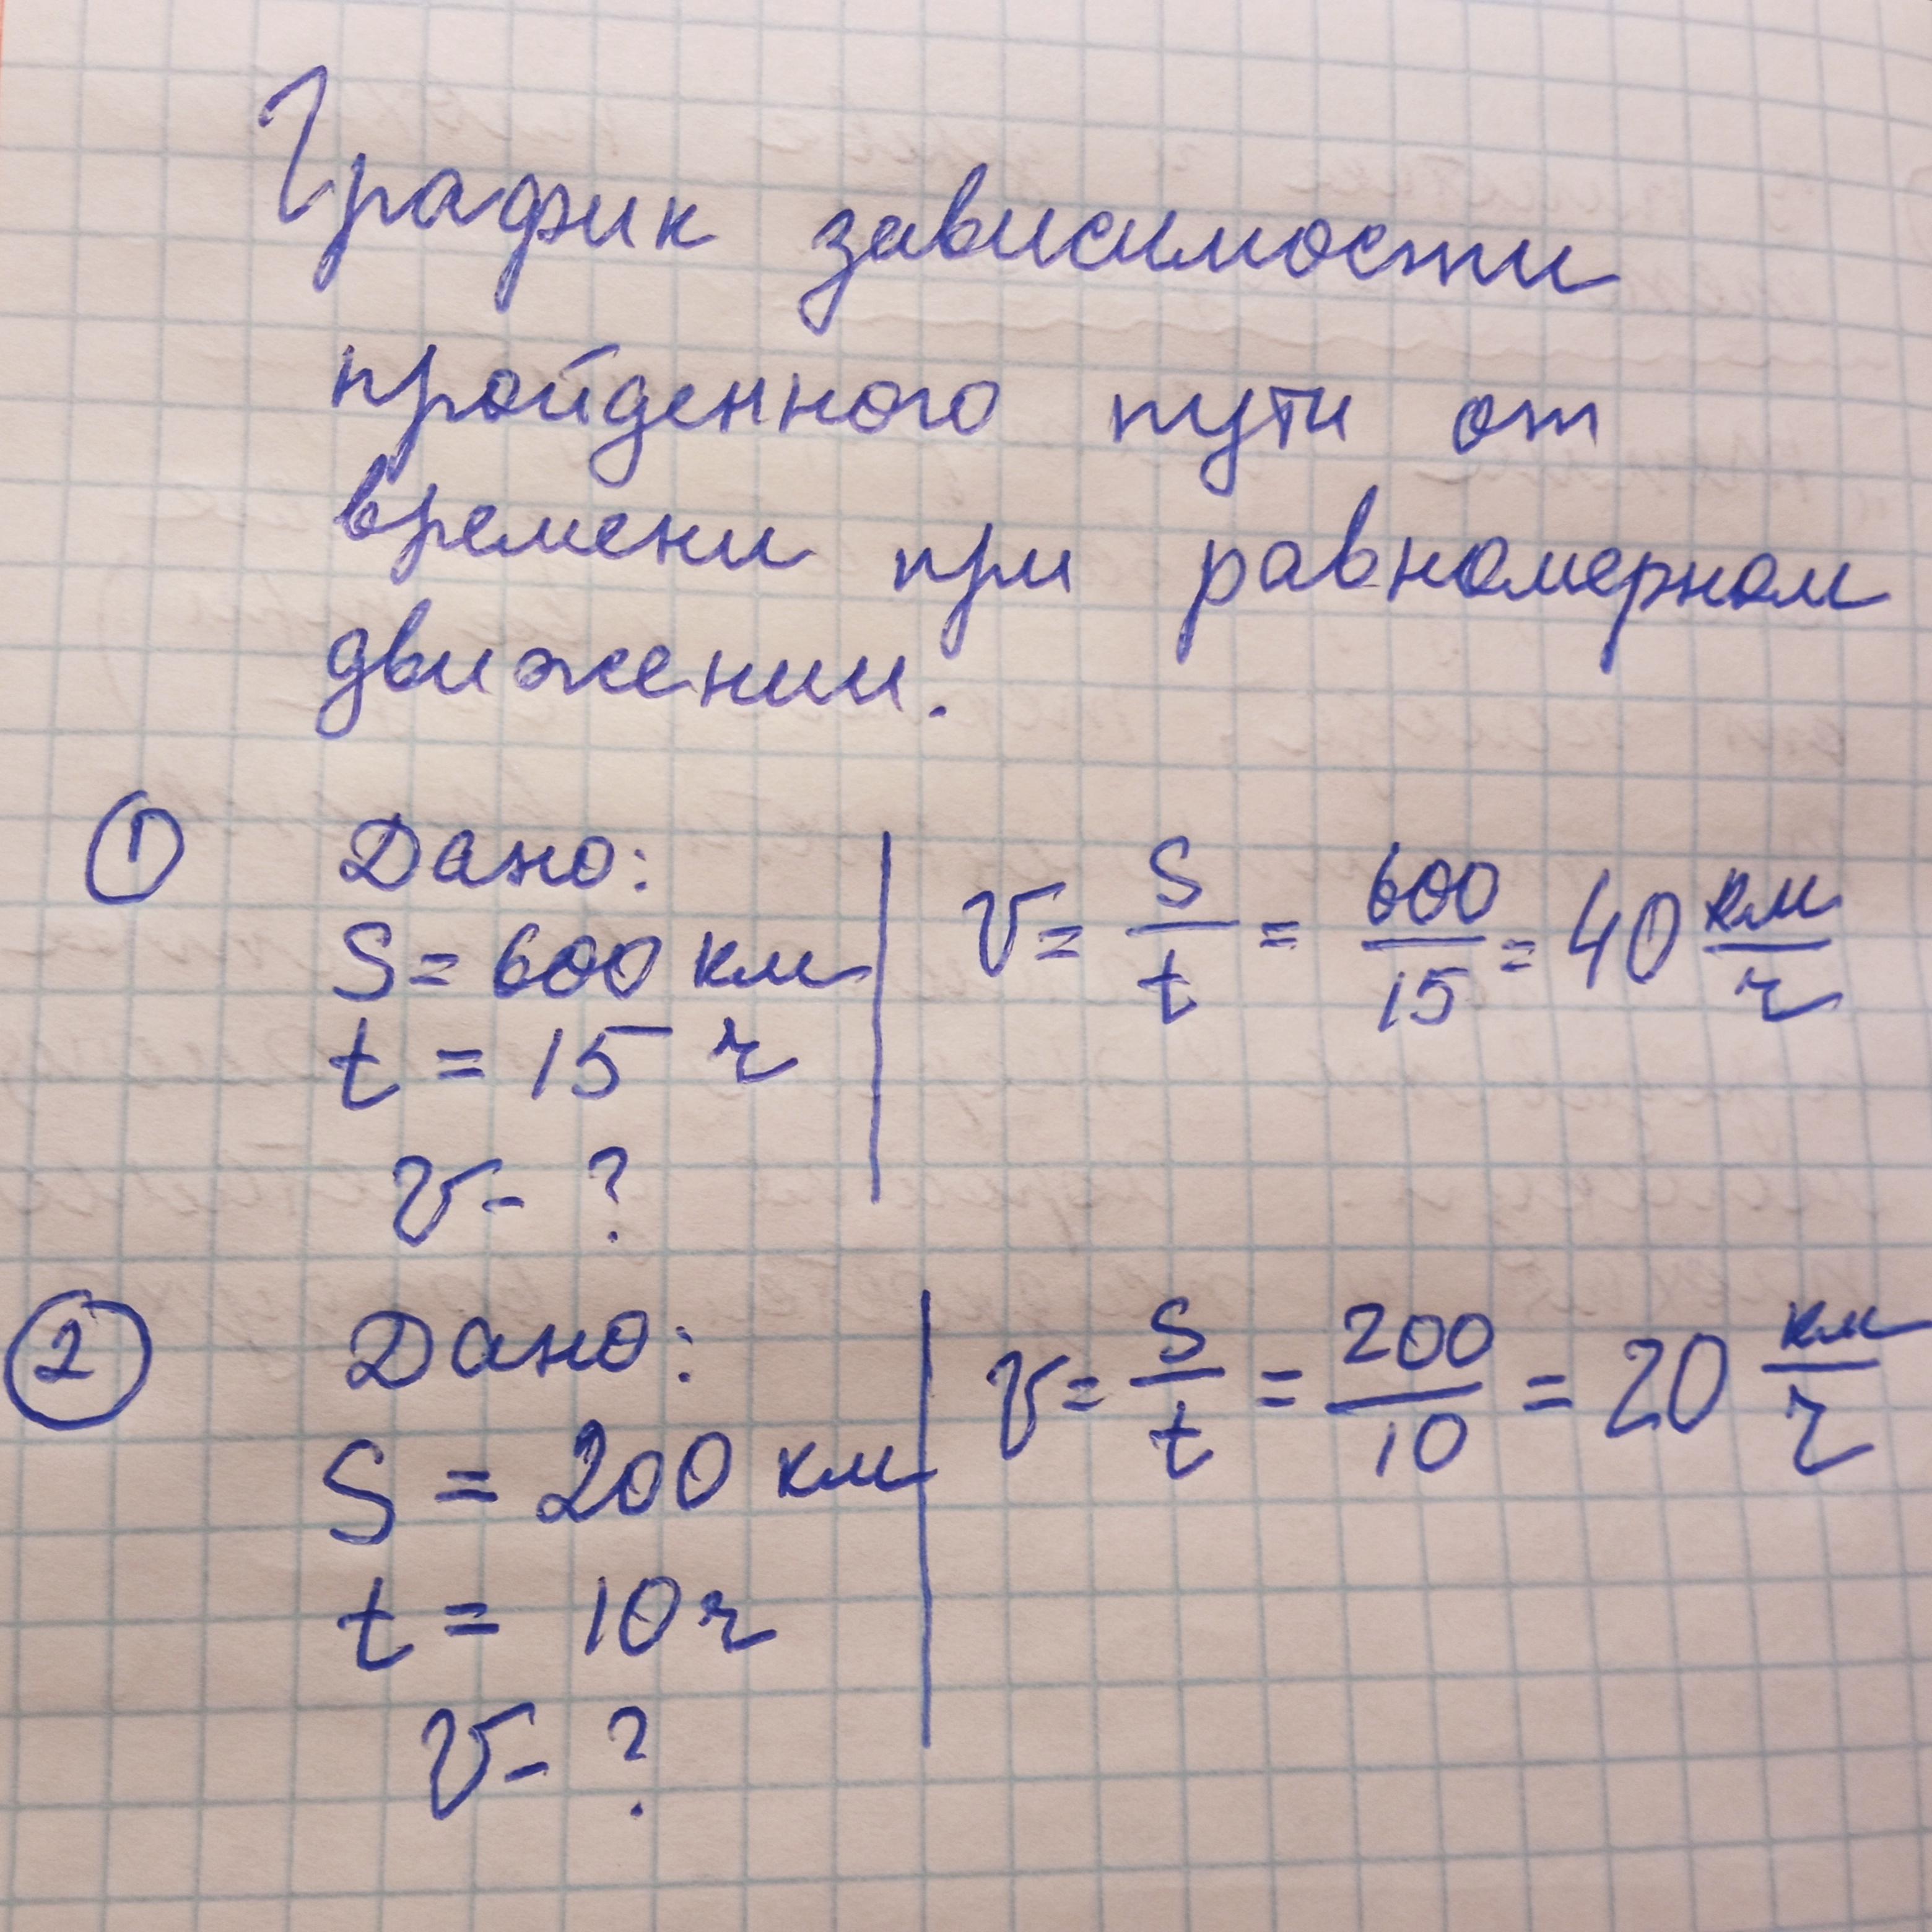 График зависимости
пройденного пути от
времени при равномерном
движении.
① Дано:
S = 600 км
t = 15 ч
v - ?
v = S/t = 600/15 = 40 км/ч
② Дано:
S = 200 км
t = 10 ч
v - ?
v = S/t = 200/10 = 20 км/ч